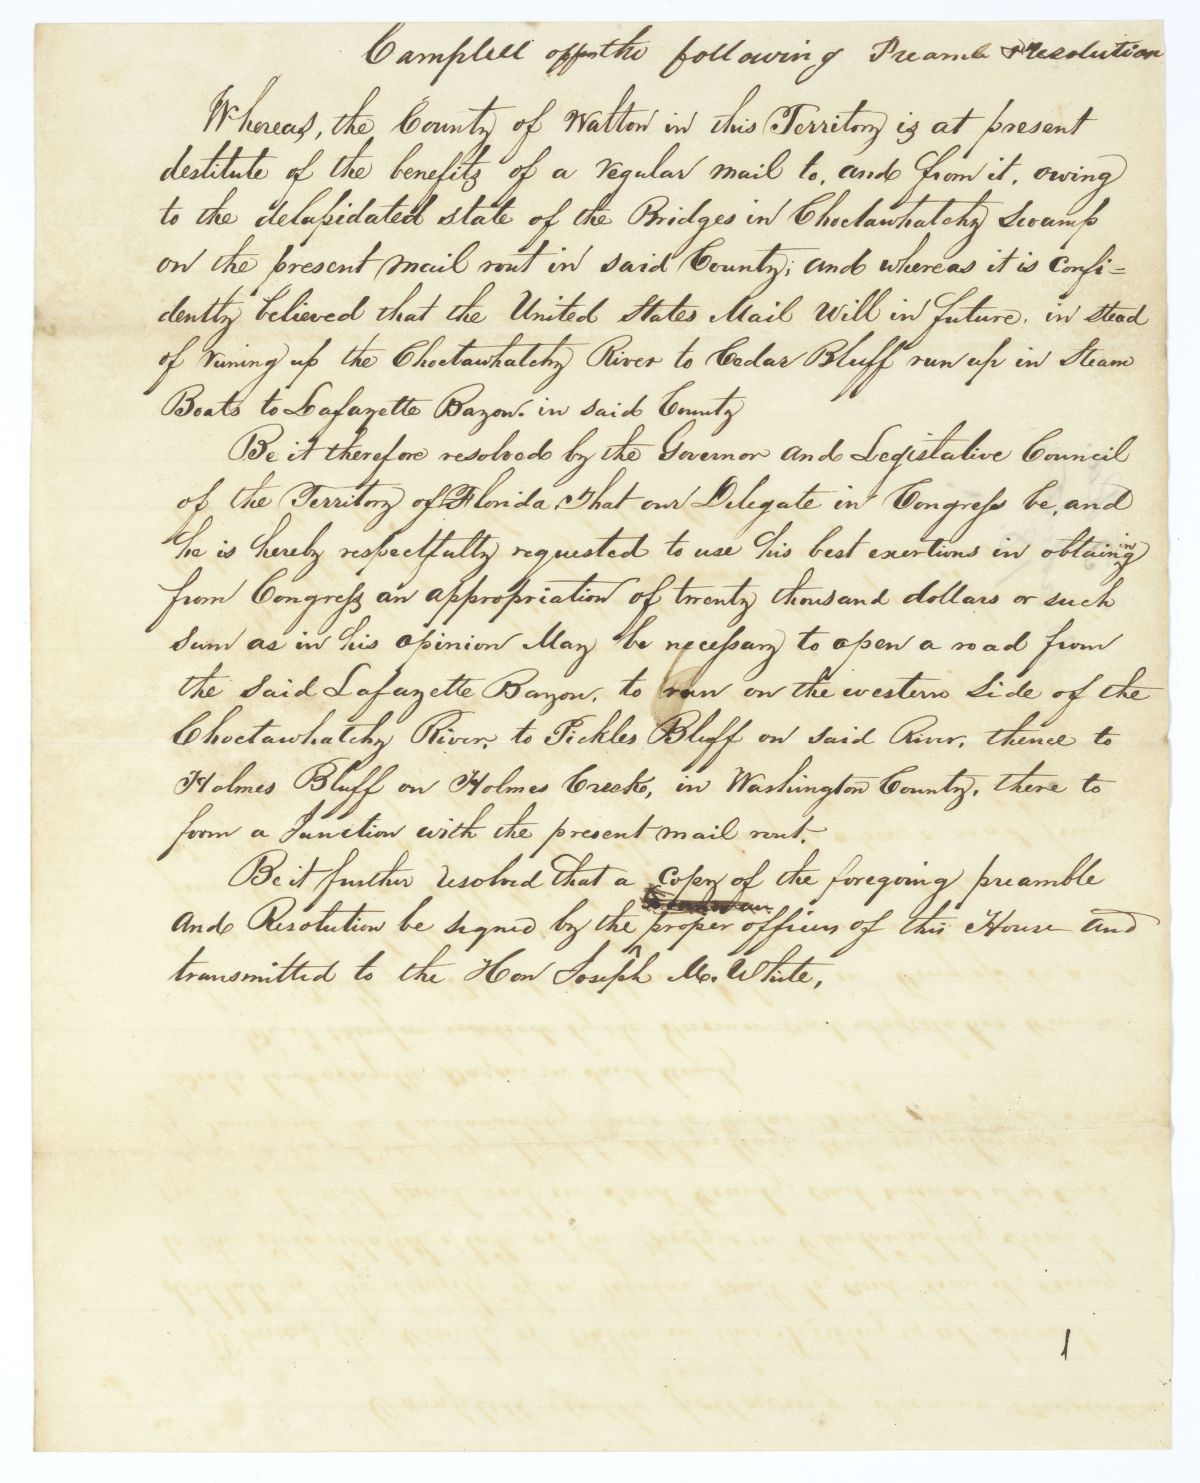 Campbell offs the following Preamb & resolution
Whereas, the County of Walton in this Territory is at present
destitute of the benefits of a regular mail to, and from it, owing
to the delapidated state of the Bridges in Choctawhatchy Swamp
on the present mail rout in said County; and whereas it is confi=
dently believed that the United States Mail Will in future, in stead
of runing up the Choctawhatchy River to Cedar Bluff run up in Steam
Boats to Lafayette Bayou. in said County
Be it therefore resolved by the Governor and Legistative Council
of the Territory of Florida That our Delegate in Congress be, and
he is hereby respectfully requested to use his best exertions in obtaining
from Congress an appropriation of twenty thousand dollars or such
sum as in his opinion May be necessary to open a road from
the said Lafayette Bayou, to run on the western side of the
Choctawhatchy River, to Pickles Bluff on said River, thence to
Holmes Bluff on Holmes Creek, in Washington County, there to
form a Junction with the present mail rout.
Be it further resolved that a copy of the foregoing preamble
and Resolution be signed by the proper officers of this House and
transmitted to the Hon Joseph M. White,
1